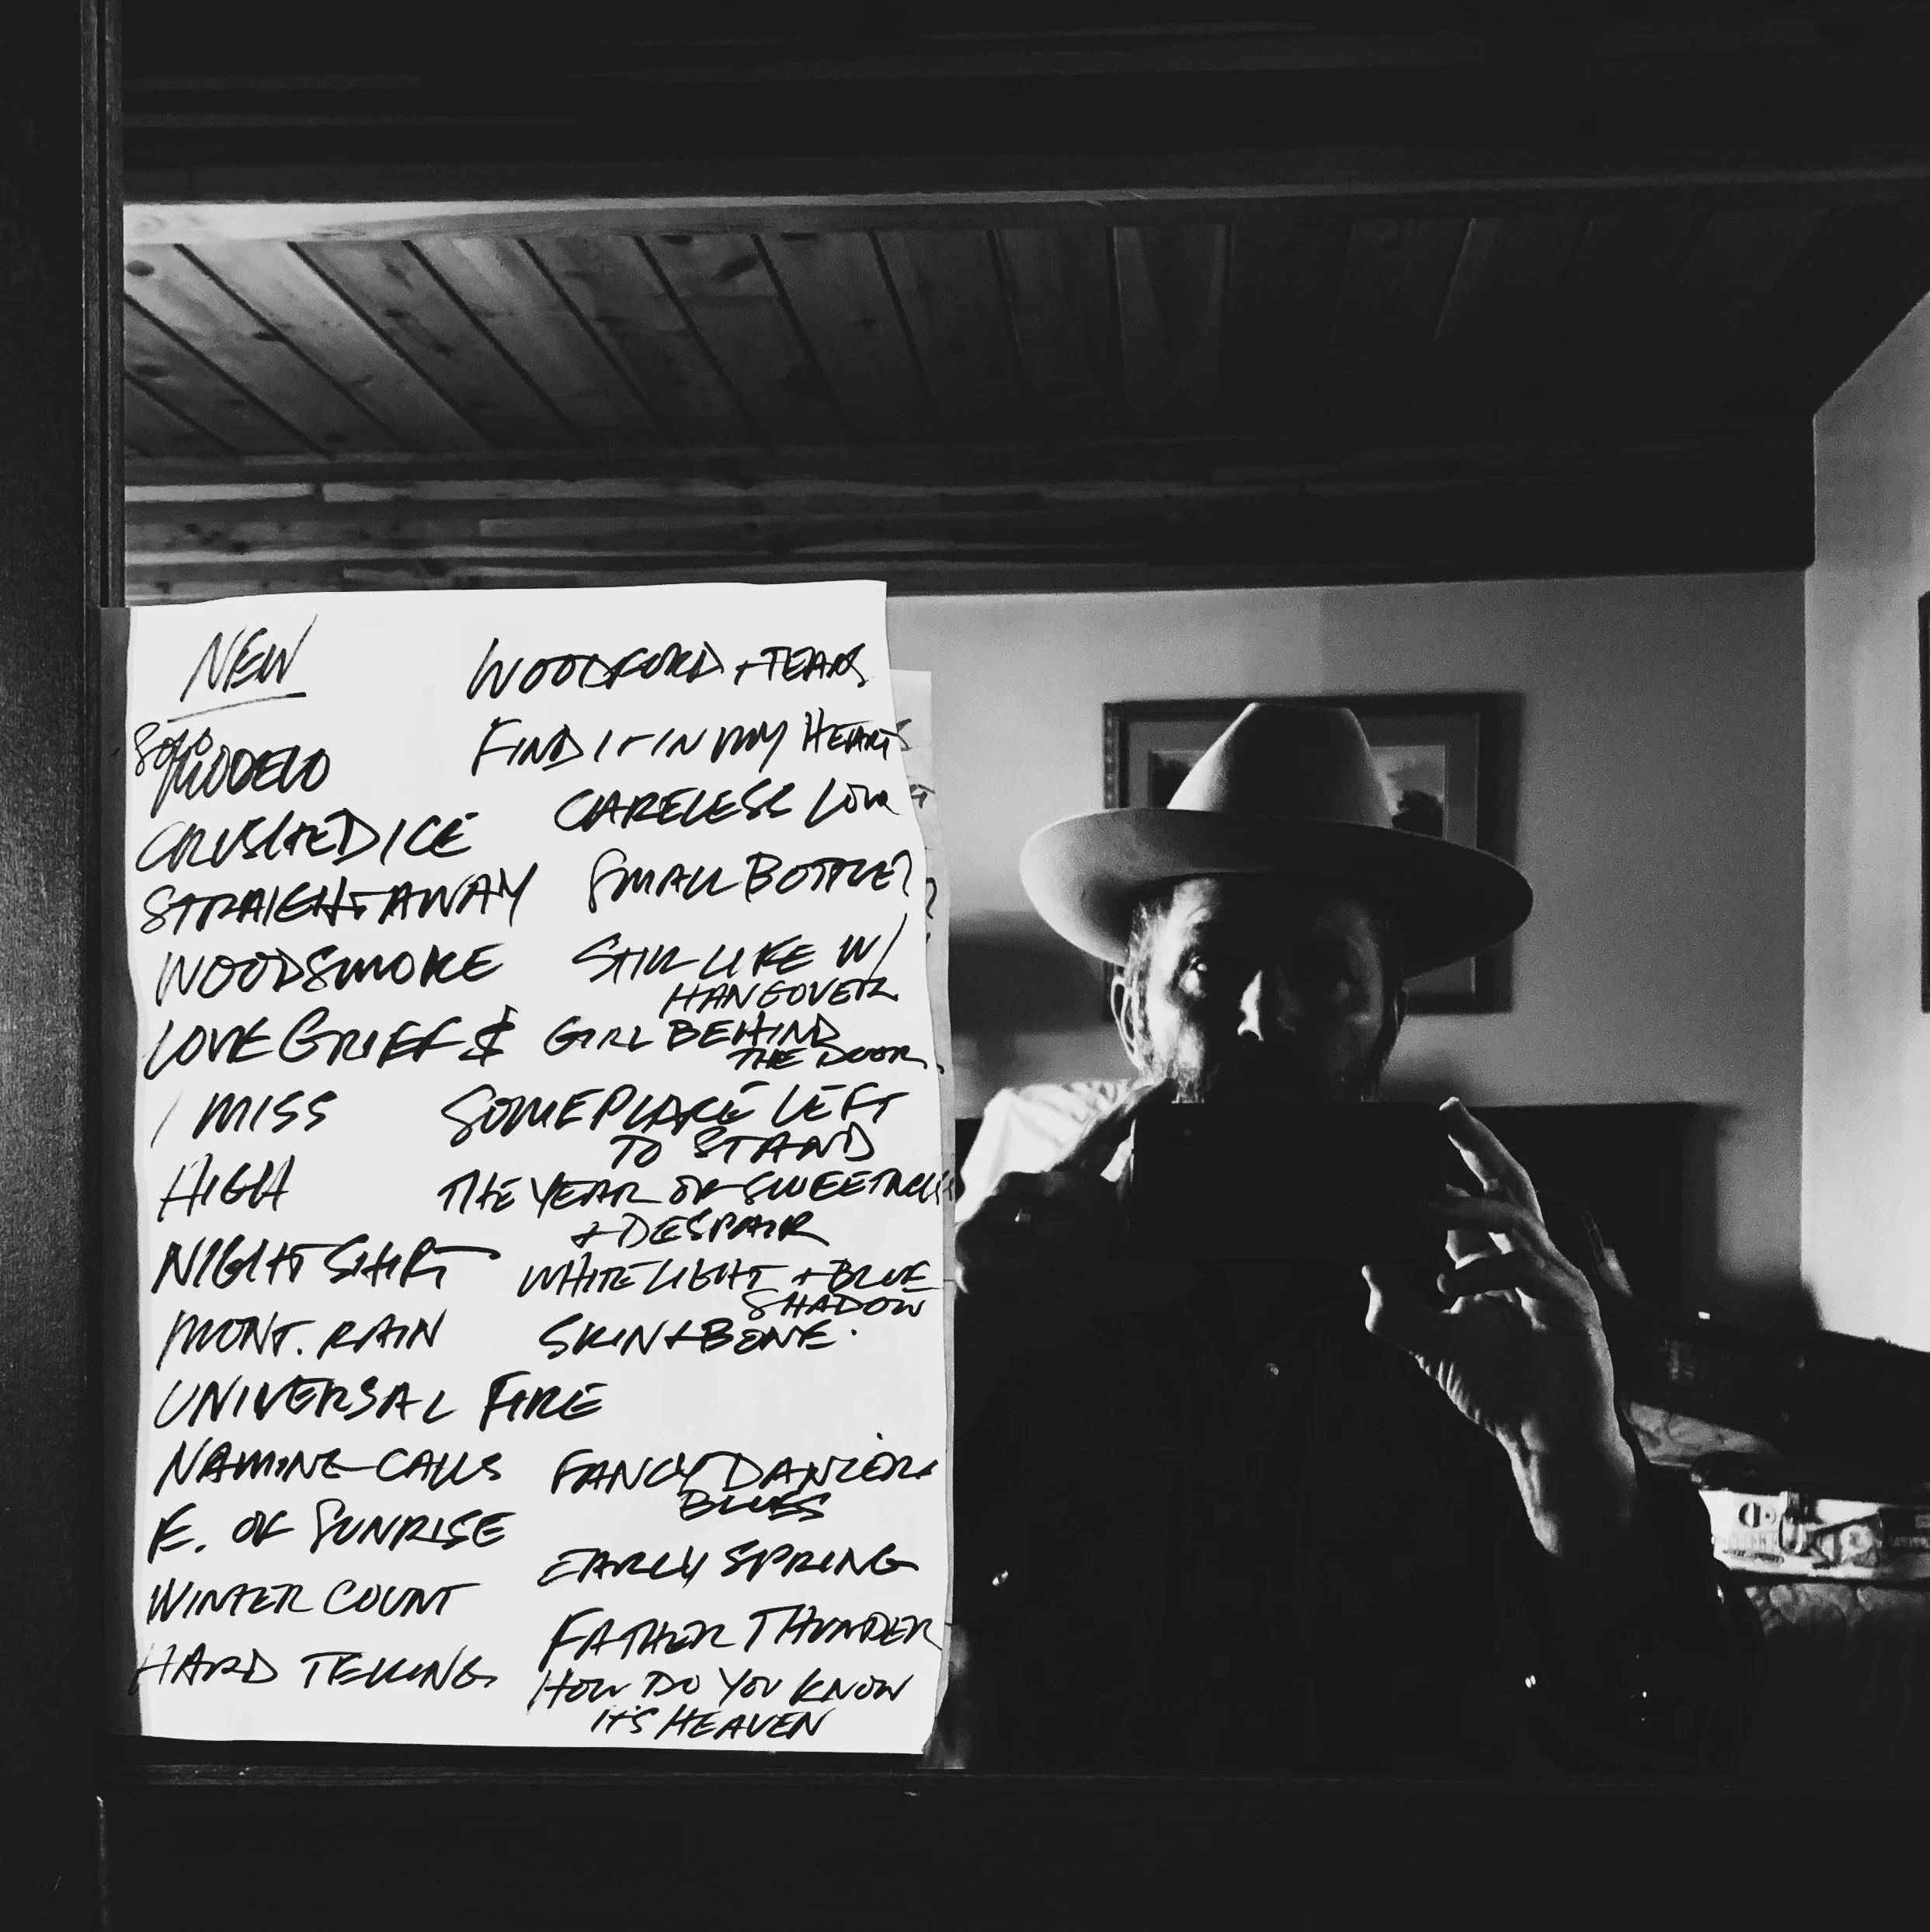 NEW
MODELO
CRUSHED ICE
STRAIGHTAWAY
WOODSMOKE
LOVE GRIEF $
I MISS
HIGH
NIGHT SHIFT
MONT. RAIN
UNIVERSAL FIRE
NAMING CALLS
E. OF SUNRISE
WINTER COUNT
HARD TELLING
WOODFORD + TEARS
FIND IT IN MY HEART
CARELESS LOVE
SMALL BOTTLE?
STILL LIFE W/
HANGOVER
GIRL BEHIND
THE DOOR.
SOMEPLACE LEFT
TO STAND
THE YEAR OF SWEETNESS
+ DESPAIR
WHITE LIGHT + BLUE
SHADOW
SKIN + BONE.
FANCY DANCER
BLUES
EARLY SPRING
FATHER THUNDER
HOW DO YOU KNOW
IT'S HEAVEN